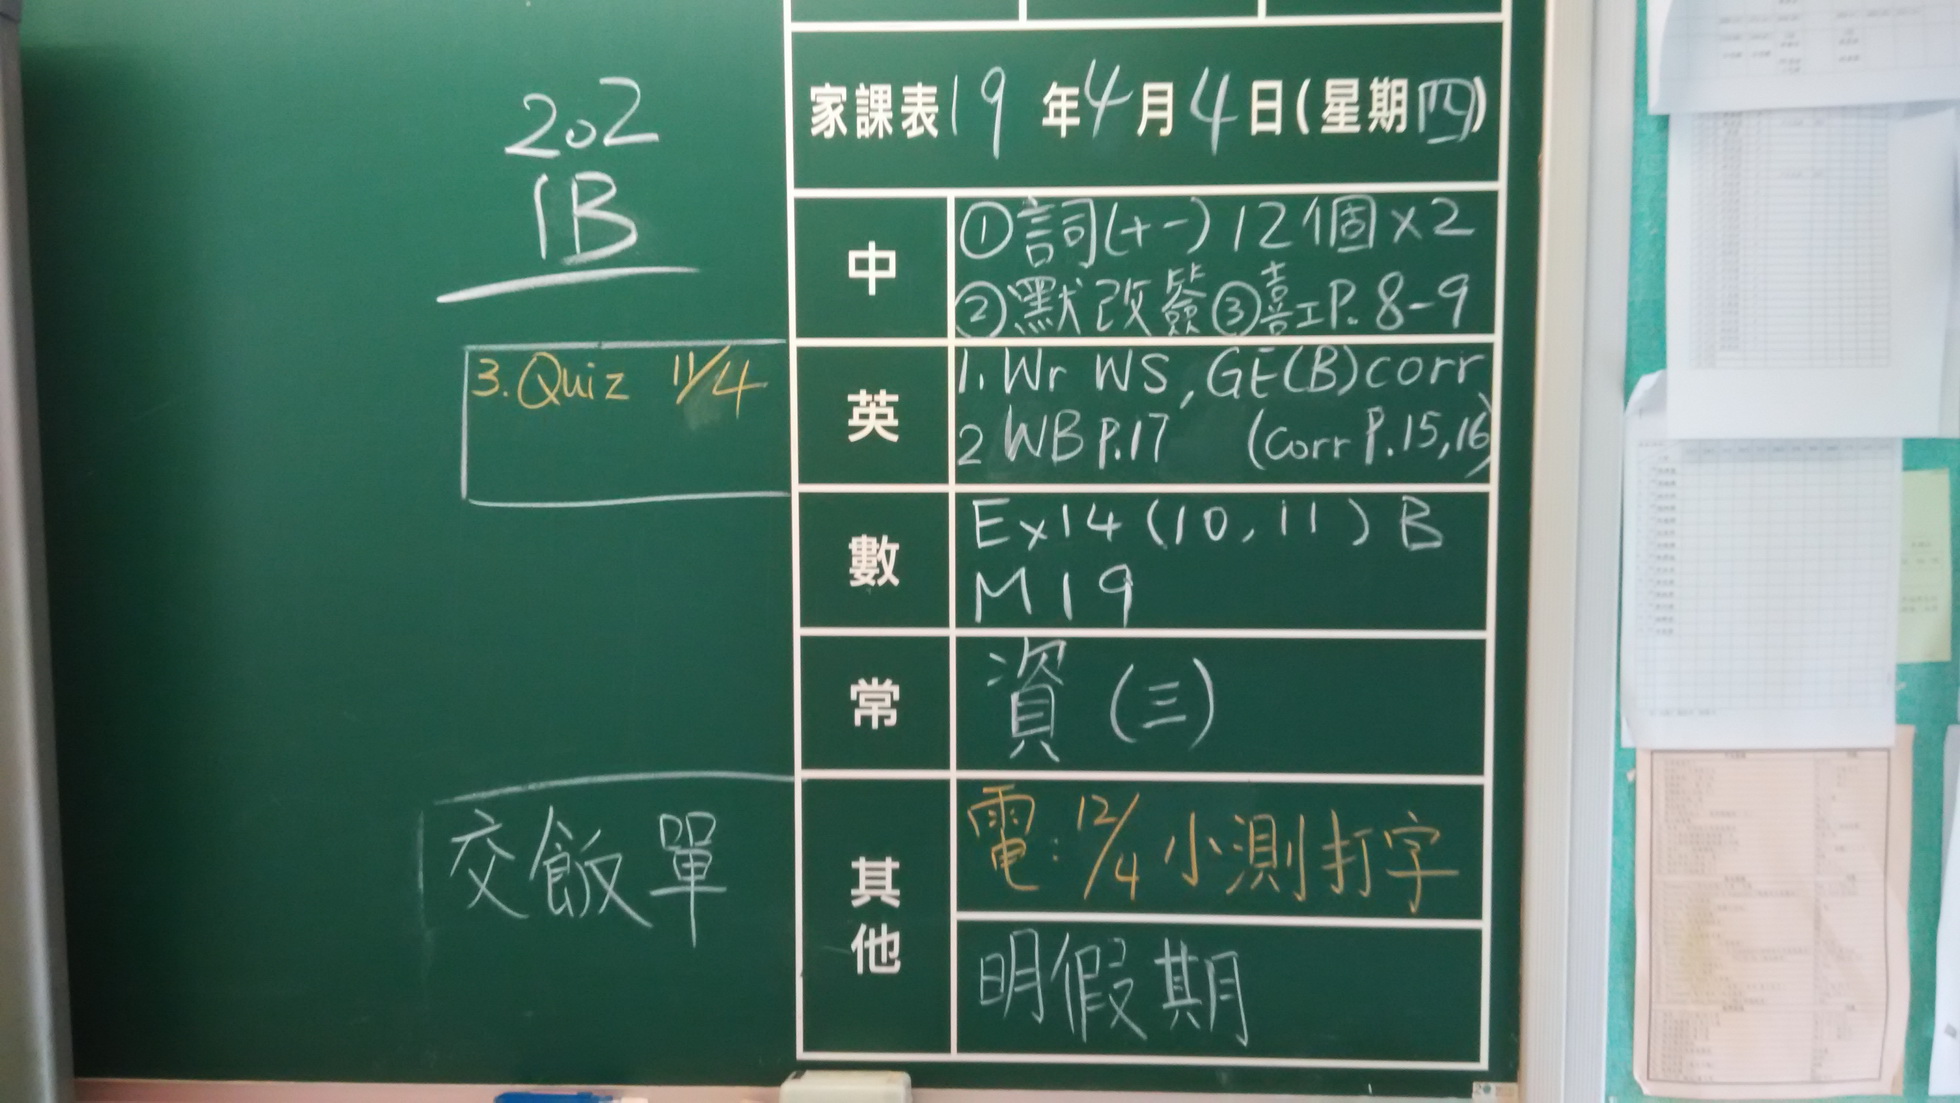 202
1B
家課表19年4月4日(星期四)
中
①詞(十一)12個×2
②默改簽③喜工P.8-9
3.Quiz 11/4
英
1.Wr WS,GE(B)corr
2 WB P.17 (corr P.15,16)
數
Ex14(10,11)B
M19
常
資(三)
交飯單
其他
電:12/4小測打字
明假期